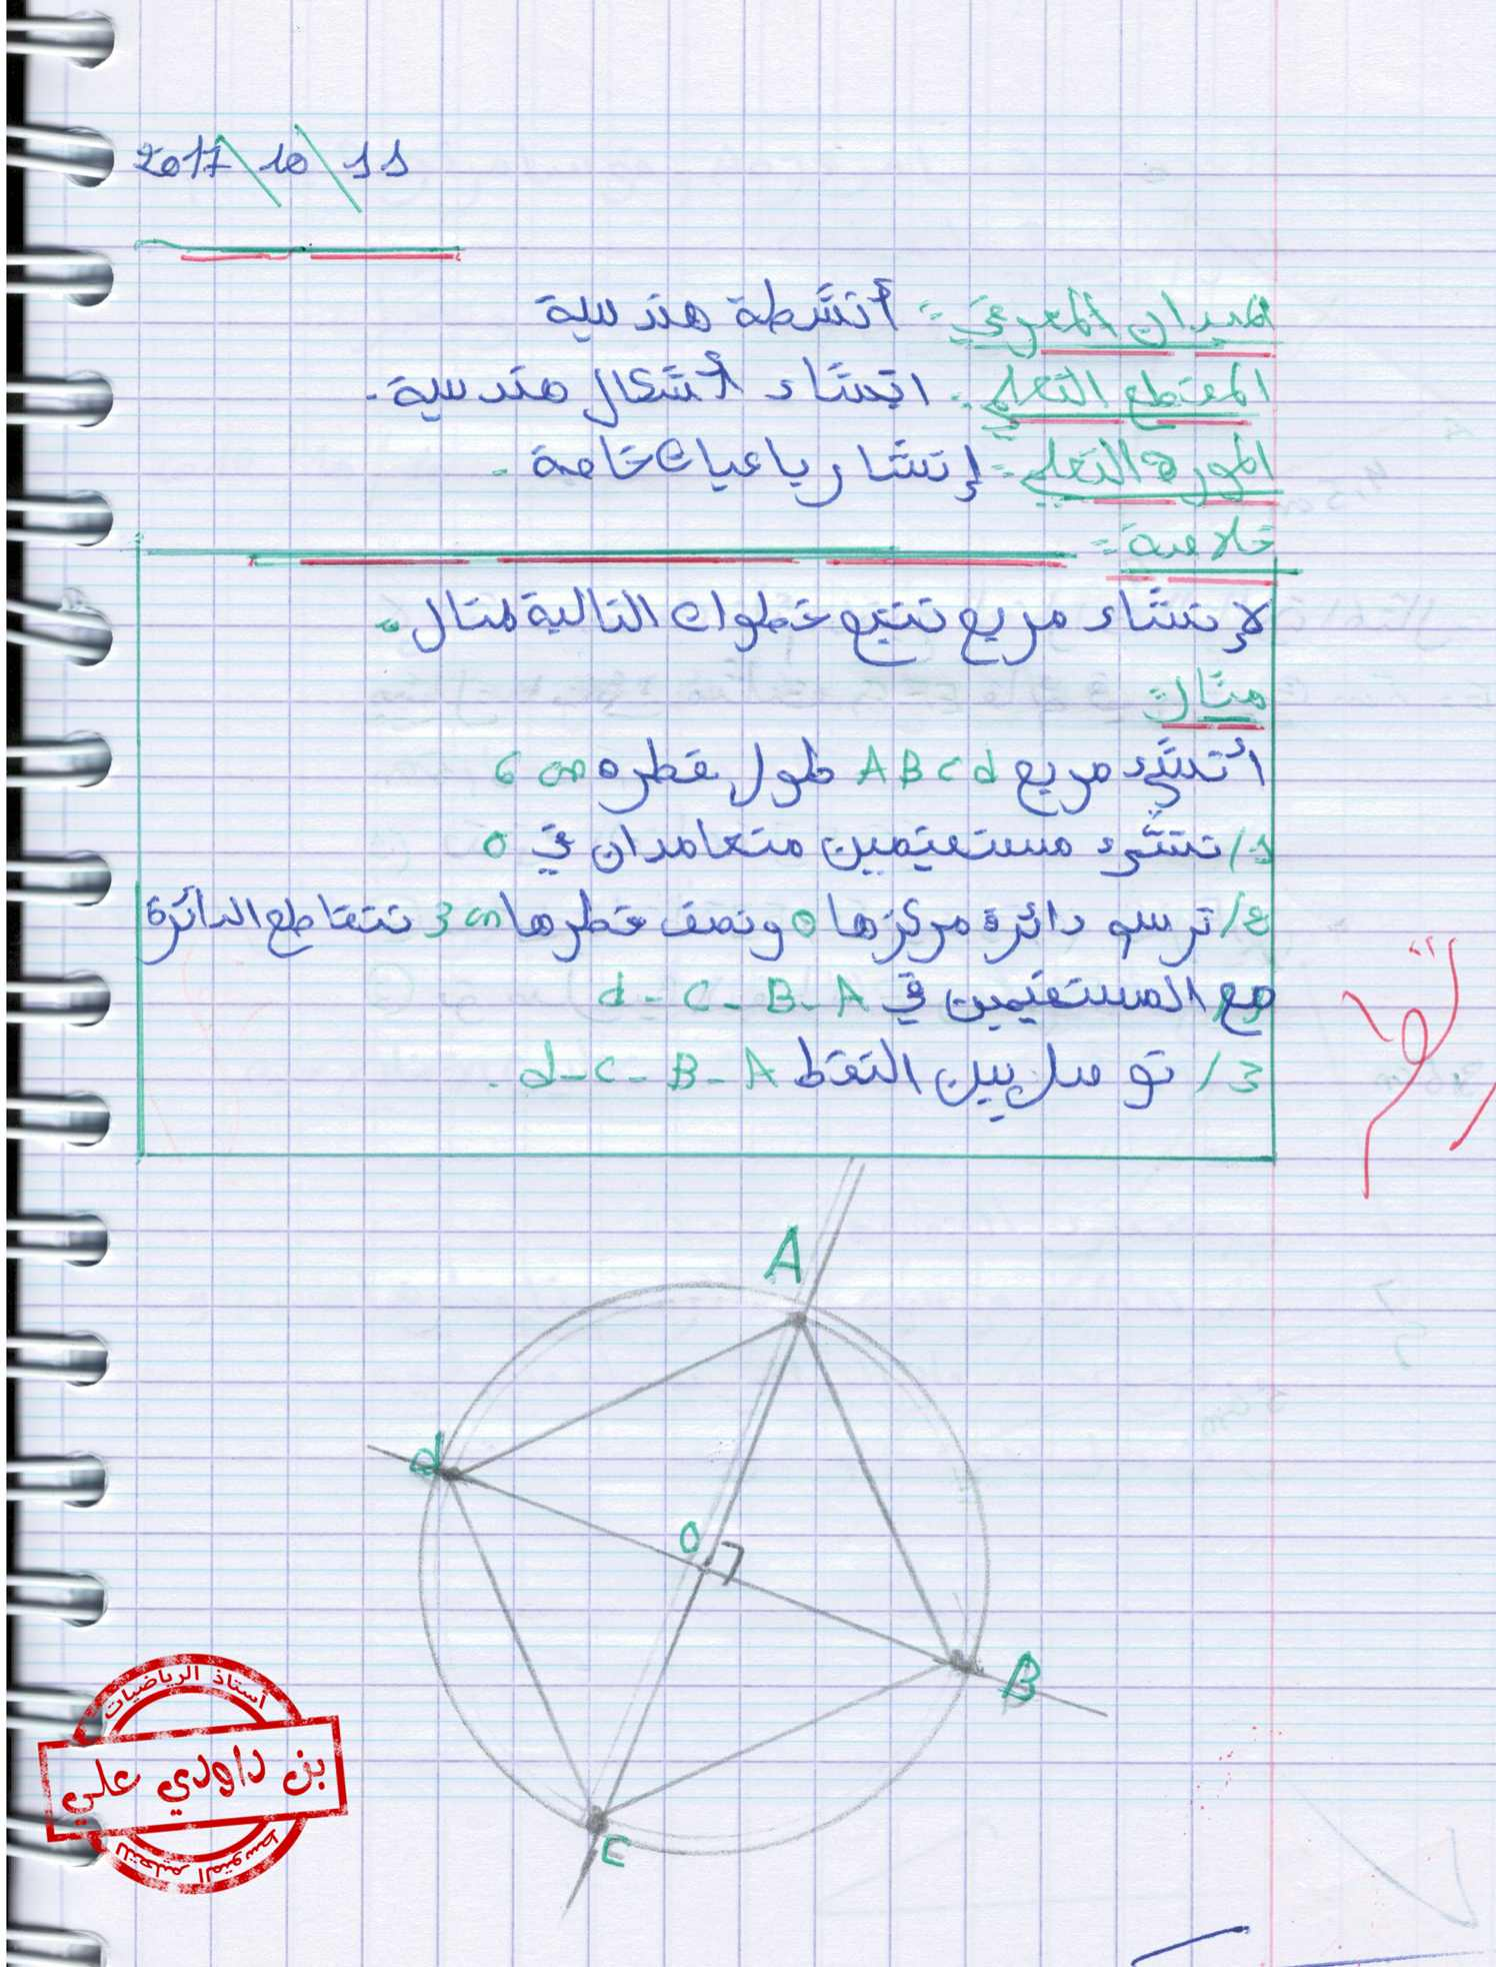 2017\10\11
الميدان المعرفي: أنشطة هندسية
المقطع التعلمي: انشاء أشكال هندسية.
المورد التعلمي: إنشار باعيات خاصة.
خلاصة:
لإنشاء مربع نتبع خطوات التالية لمثال.
مثال:
أنشئ مربع ABCd طول قطره 6 cm
1/ ننشىء مستقيمين متعامدان في O
2/ نرسو دائرة مركزها o ونصف قطرها 3 cm تتقاطع الدائرة
مع المستقيمين في d - C - B - A
3/ نوصل بين النقط d - C - B - A.
A
d
O
B
C
أستاذ الرياضيات
بن داودي علي
للتعليم المتوسط